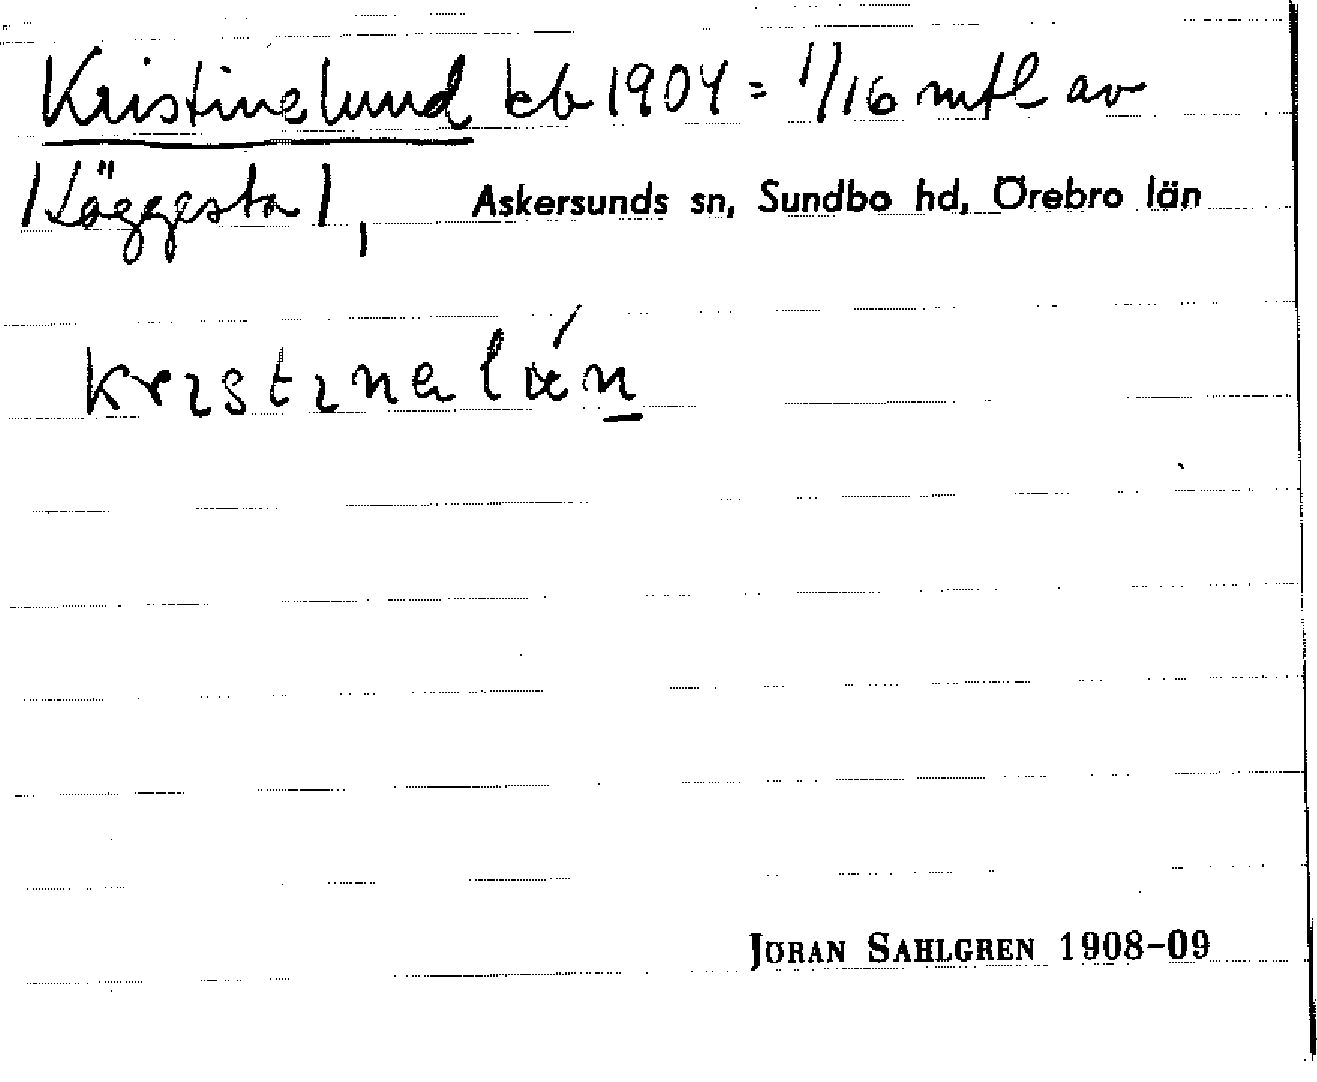 Kristinelund kb 1904 = 1/16 mtl av
/Läggesta/, Askersunds sn, Sundbo hd, Örebro län
JÖRAN SAHLGREN 1908–09